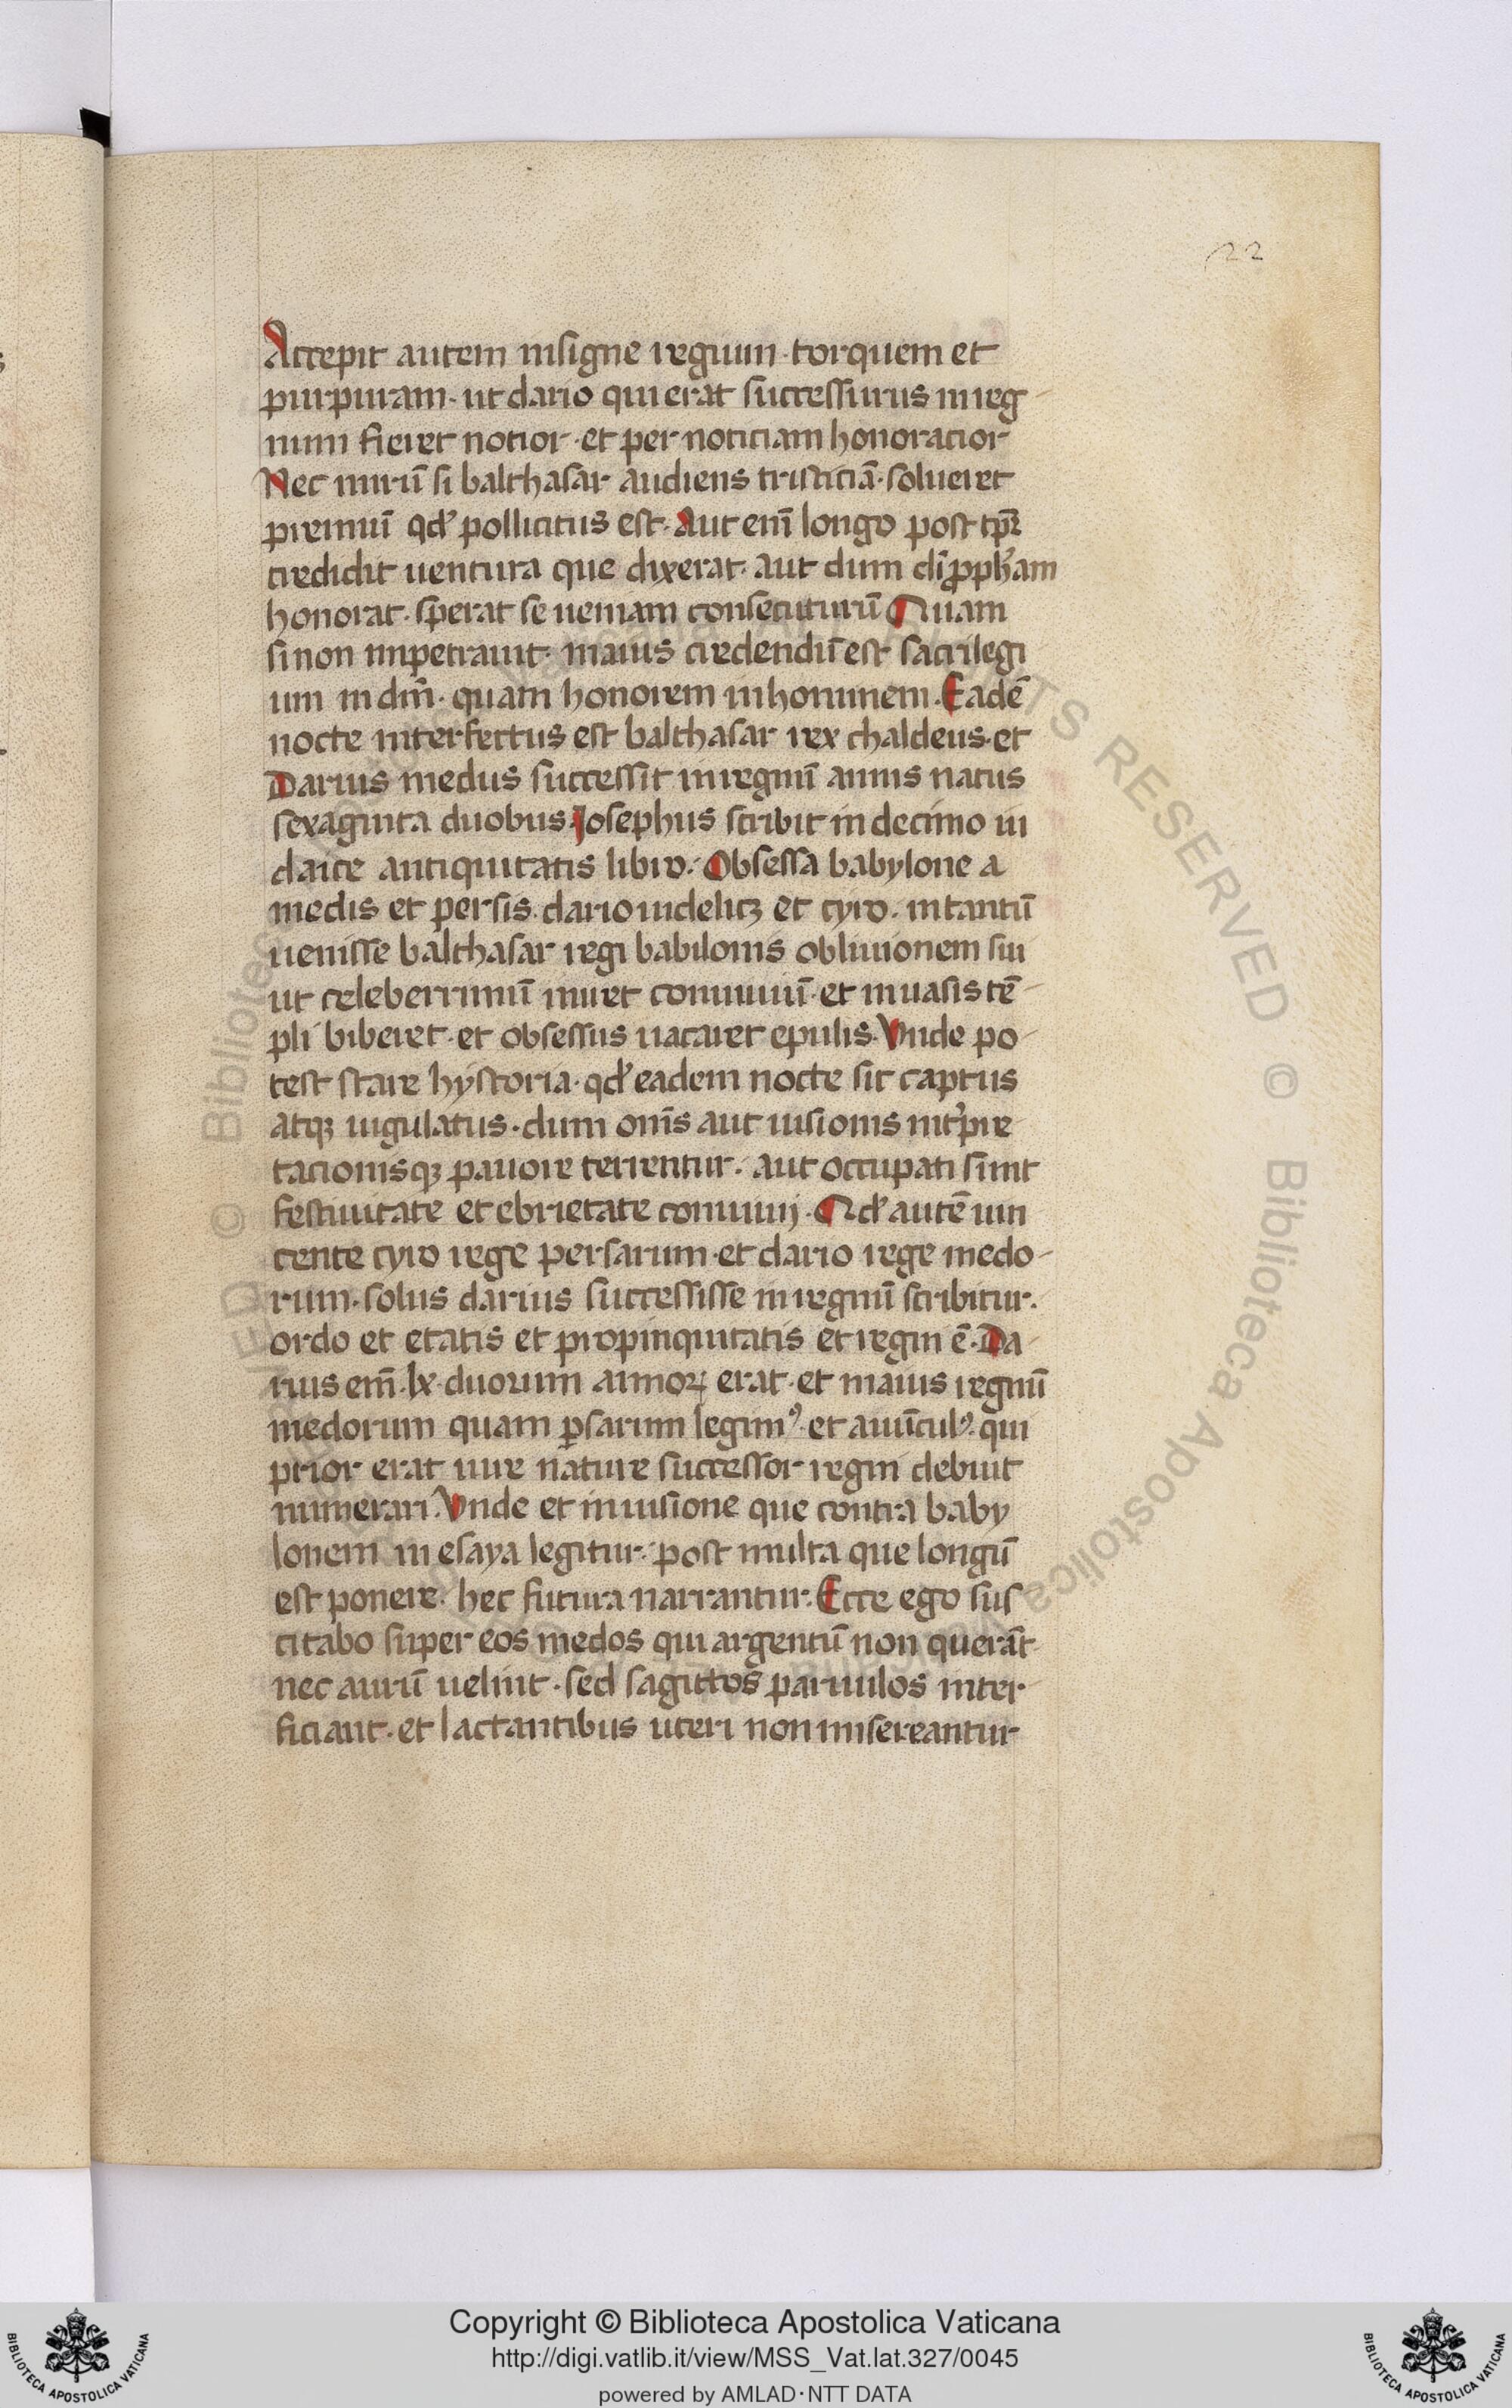 22
Accepit autem insigne regium · torquem et
purpuram · ut dario qui erat successurus in reg-
num fieret notior · et per noticiam honoratior
Nec mirū si balthasar audiens tristiciā · solueret
premiū qđ pollicitus est · Aut enī longo post tp̄r
credidit uentura que dixerat · aut dum di ꝓph̄am
honorat · sperat se ueniam consecuturū Quam
si non impetrauit · maius credendū est sacrilegi
um in dm̄ · quam honorem in hominem · Eadē
nocte interfectus est balthasar rex chaldeus · et
Darius medus successit in regnū annis natus
sexaginta duobus · Josephus scribit in decimo iu
daice antiquitatis libro · Obsessa babylone a
medis et persis · dario uidelicꝫ et cyro · in tantū
uenisse balthasar regi babilonis obliuionem sui
ut celeberrimū iniret conuiuiū · et in uasis tē-
pli biberet · et obsessus uacaret epulis · Vnde po-
test stare hystoria · qđ eadem nocte sit captus
atqꝫ iugulatus · dum om̄s aut uisionis int̓pre
tacionisqꝫ pauore terrentur · aut occupati sunt
festiuitate et ebrietate conuiuij · Qđ autē uin
cente cyro rege persarum · et dario rege medo-
rum · solus darius successisse in regnū scribitur ·
ordo et etatis et propinquitatis et regni ē · Da-
rius em̄ · lx · duorum annoꝝ erat · et maius regnū
medorum quam ꝑsarum legimꝰ · et auūculꝰ · qui
prior erat iure nature successor regni debuit
numerari · Vnde et in uisione que contra baby
lonem in esaya legitur · post multa que longū
est ponere · hec futura narrantur · Ecce ego sus
citabo super eos medos qui argentū non querāt
nec aurū uelint · sed sagittos paruulos inter-
ficiant · et lactantibus uteri non misereantur
Copyright © Biblioteca Apostolica Vaticana
http://digi.vatlib.it/view/MSS_Vat.lat.327/0045
powered by AMLAD·NTT DATA